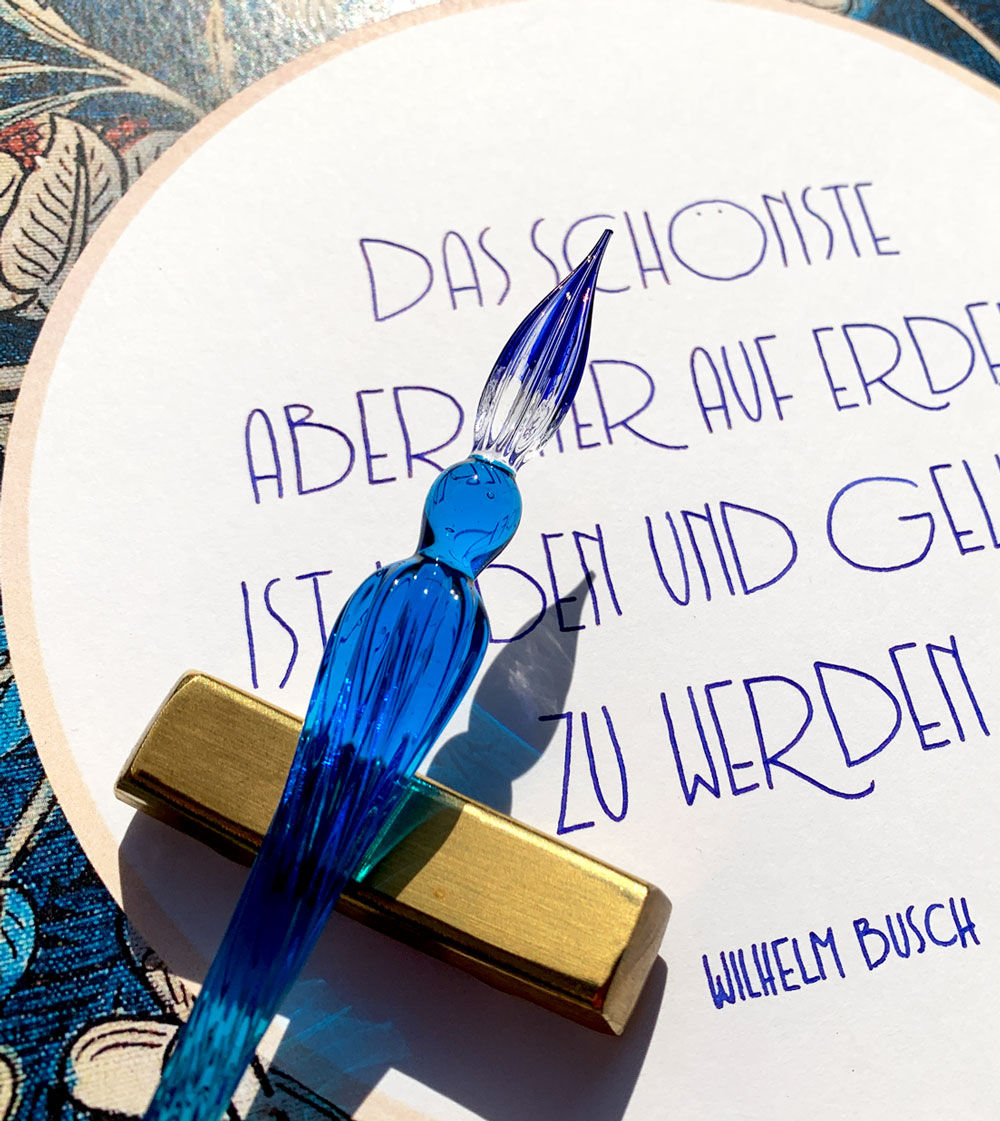 DAS SCHÖNSTE
ABER HIER AUF ERDEN
IST LIEBEN UND
ZU WERDEN
WILHELM BUSCH